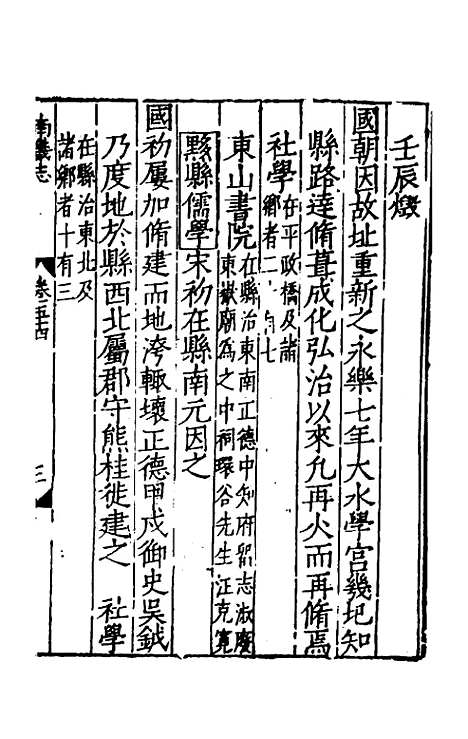 壬辰燬
國朝因故址重新之永樂七年大水學宫幾圯知
縣路達脩葺成化弘治以來凡再火而再脩焉
社學在平政橋及諸
鄉者二十有七
東山書院在縣治東南正德中知府留志淑廢
東嶽廟為之中祠環谷先生汪克寬
黟縣儒學宋初在縣南元因之
國初屢加脩建而地洿輒壞正德甲戌御史吳鉞
乃度地於縣西北屬郡守熊桂徙建之 社學
在縣治東北及
諸鄉者十有三
南畿志 卷五十四 三